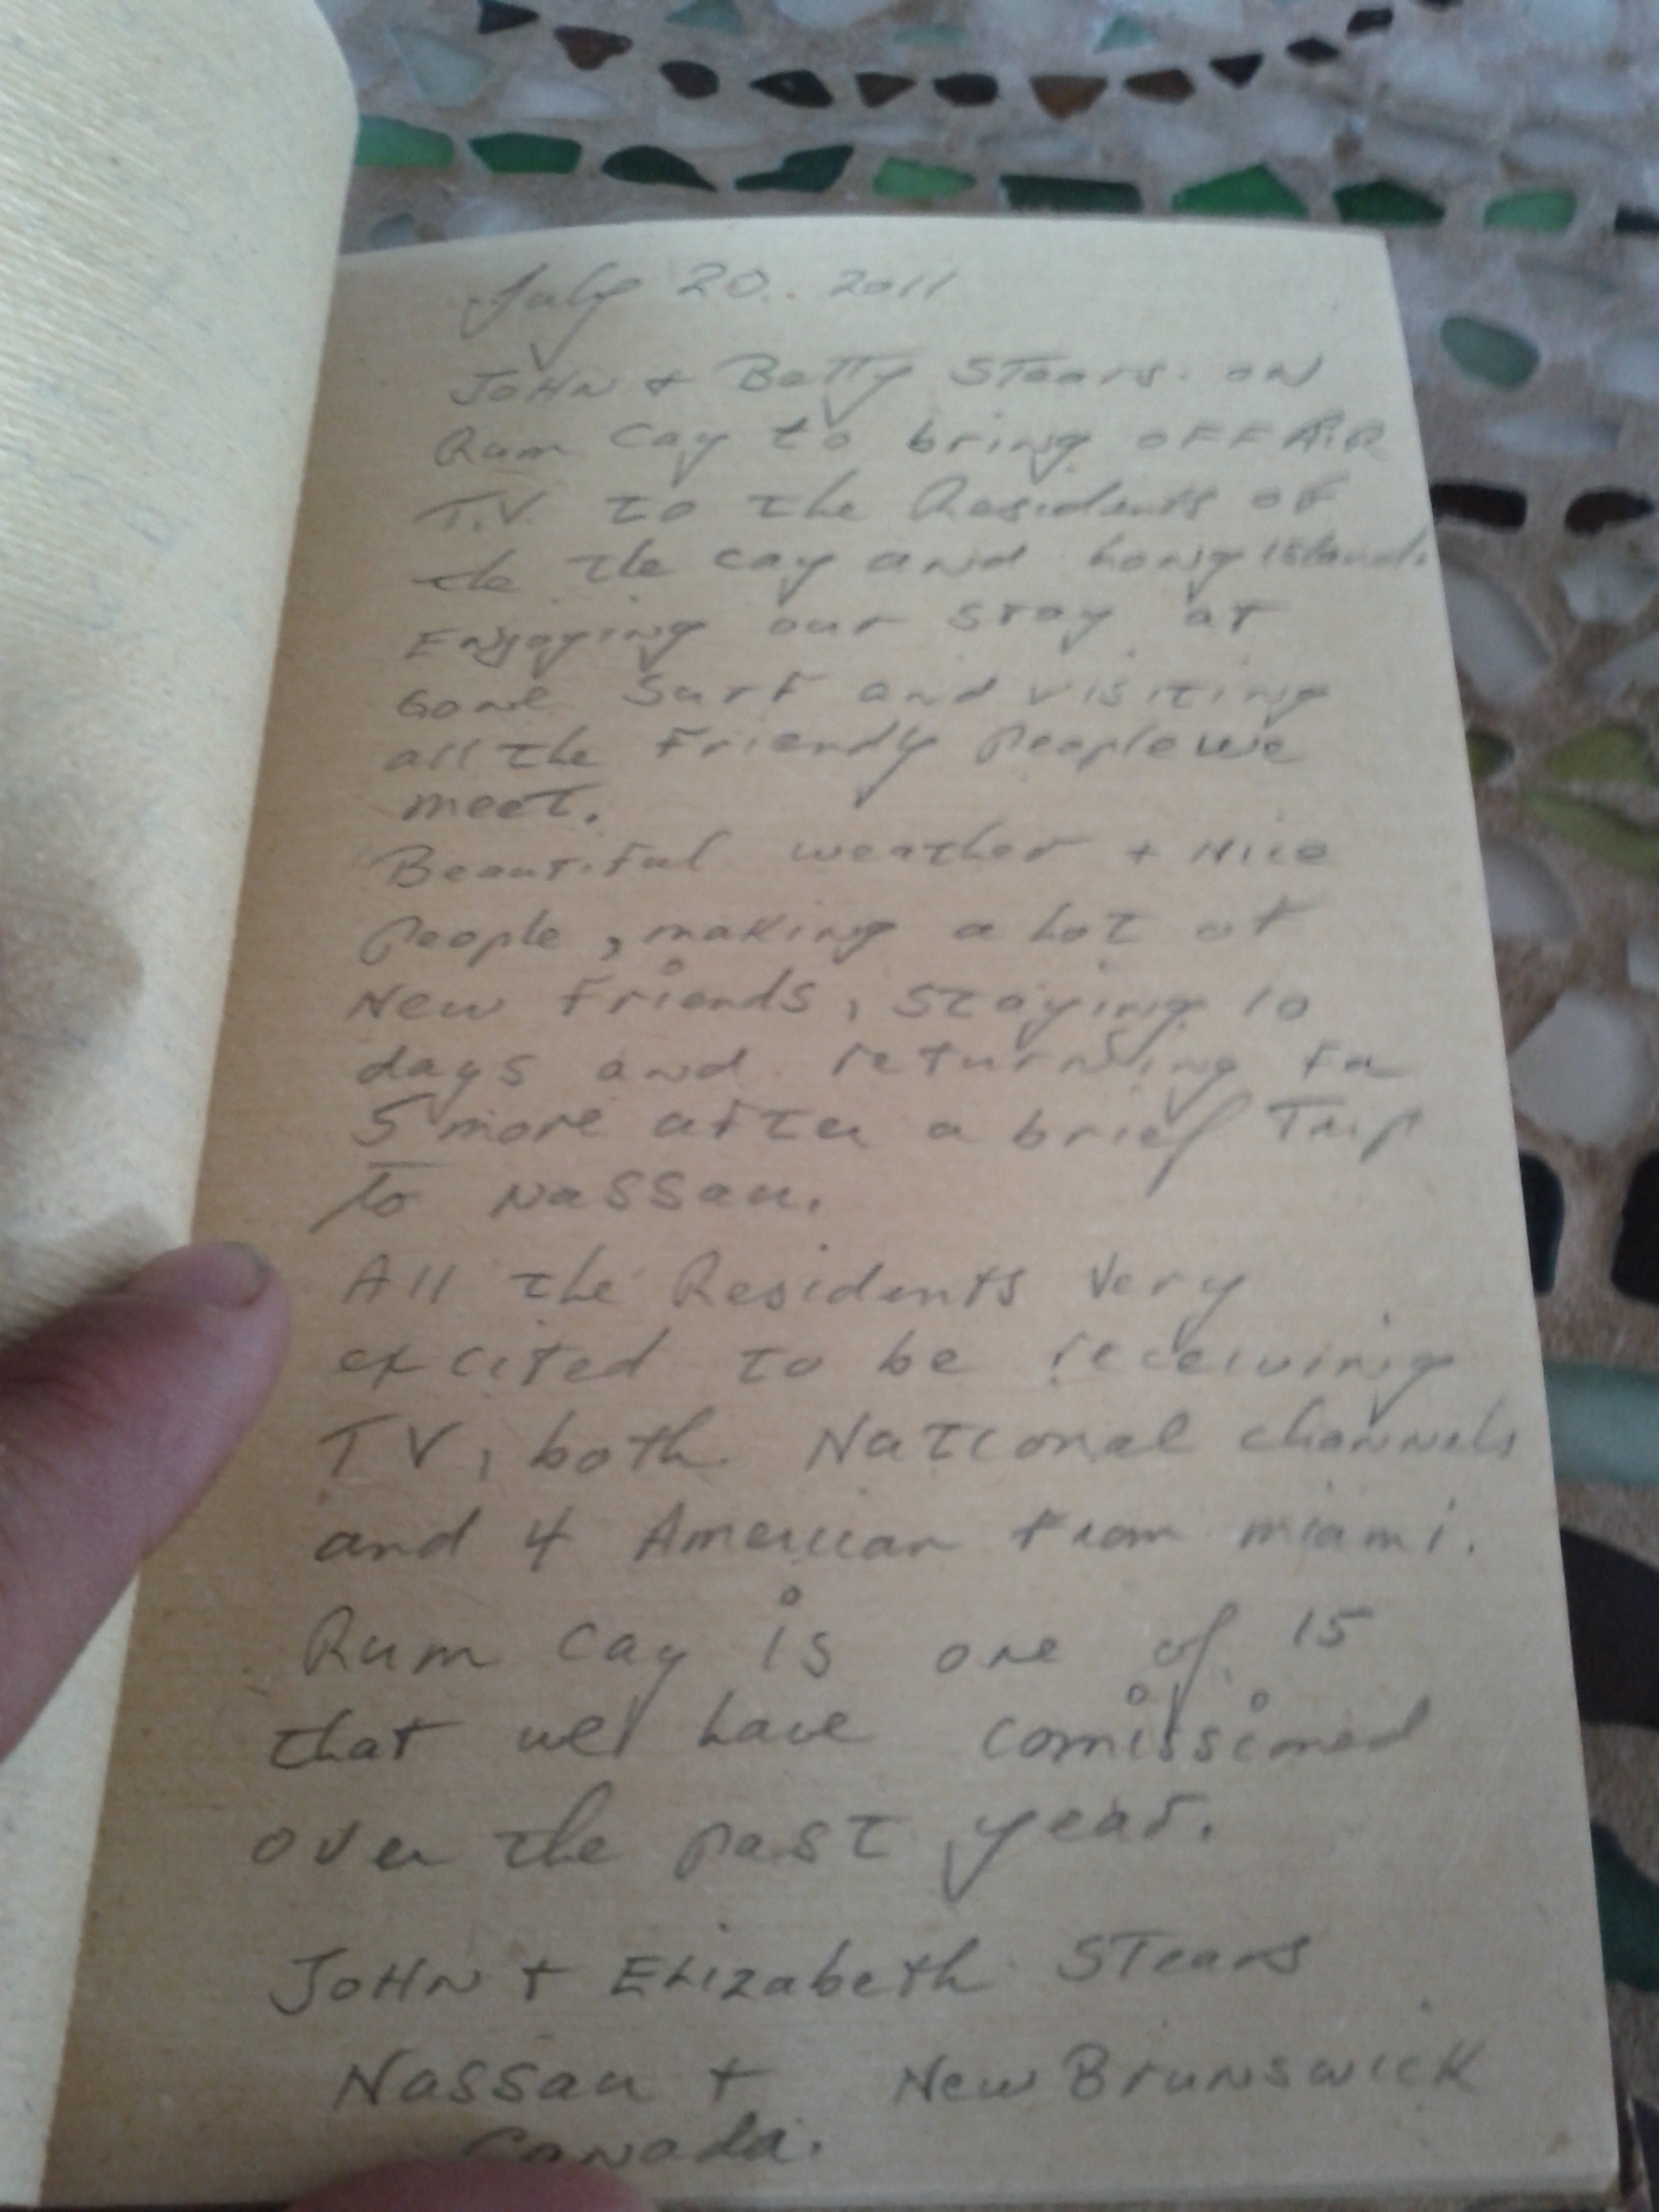 July 20. 2011
JOHN + Betty STears. ON
Rum Cay to bring OFF AIR
T.V. to the Residents of
the the cay and Long Island.
Enjoying our stay at
Gone Surf and visiting
all the Friendly People we
meet.
Beautiful weather + Nice
People, making a Lot of
New Friends, staying 10
days and returning for
5 more after a brief Trip
to Nassau.
All the Residents Very
excited to be receiving
TV, both National channels
and 4 American from miami.
Rum Cay is one of 15
that we have comissioned
over the past year.
JOHN + ELizabeth STears
Nassau + New Brunswick
Canada.